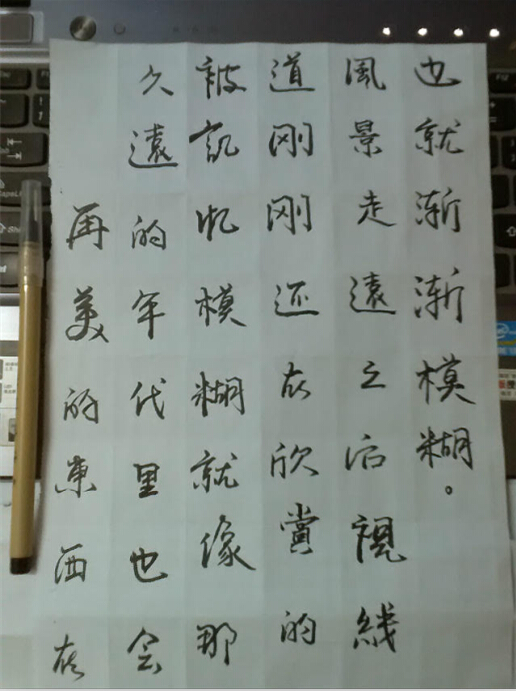 再美的東西在
久遠的年代里也会
被記忆模糊就像那
道刚刚还在欣賞的
風景走遠之后視线
也就渐渐模糊。